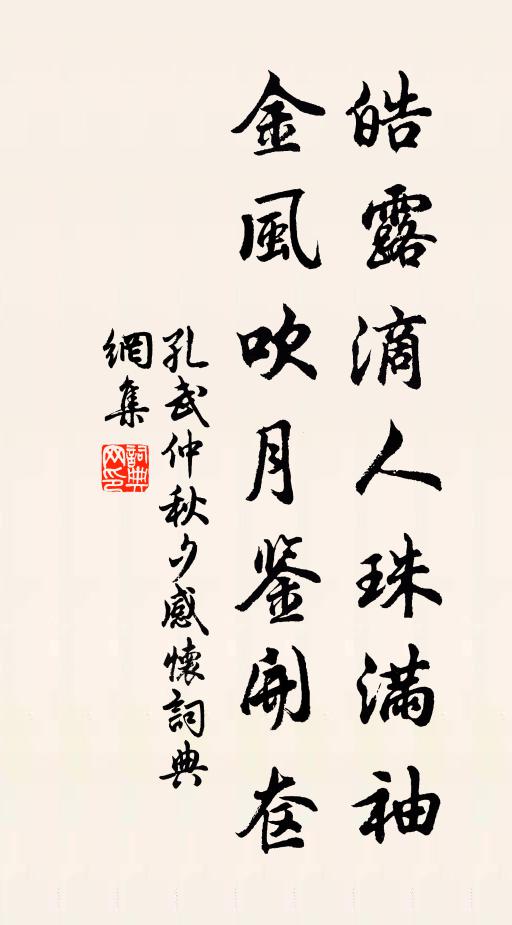 皓露滴人珠滿袖
金風吹月鉴開奁
孔武仲秋夕感懷詞典
網集
詞典
网印